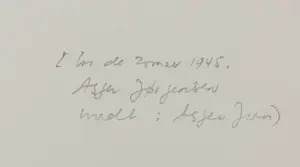 [ In de zomer 1945.
Asger Jørgensen
wordt : Asger Jorn)